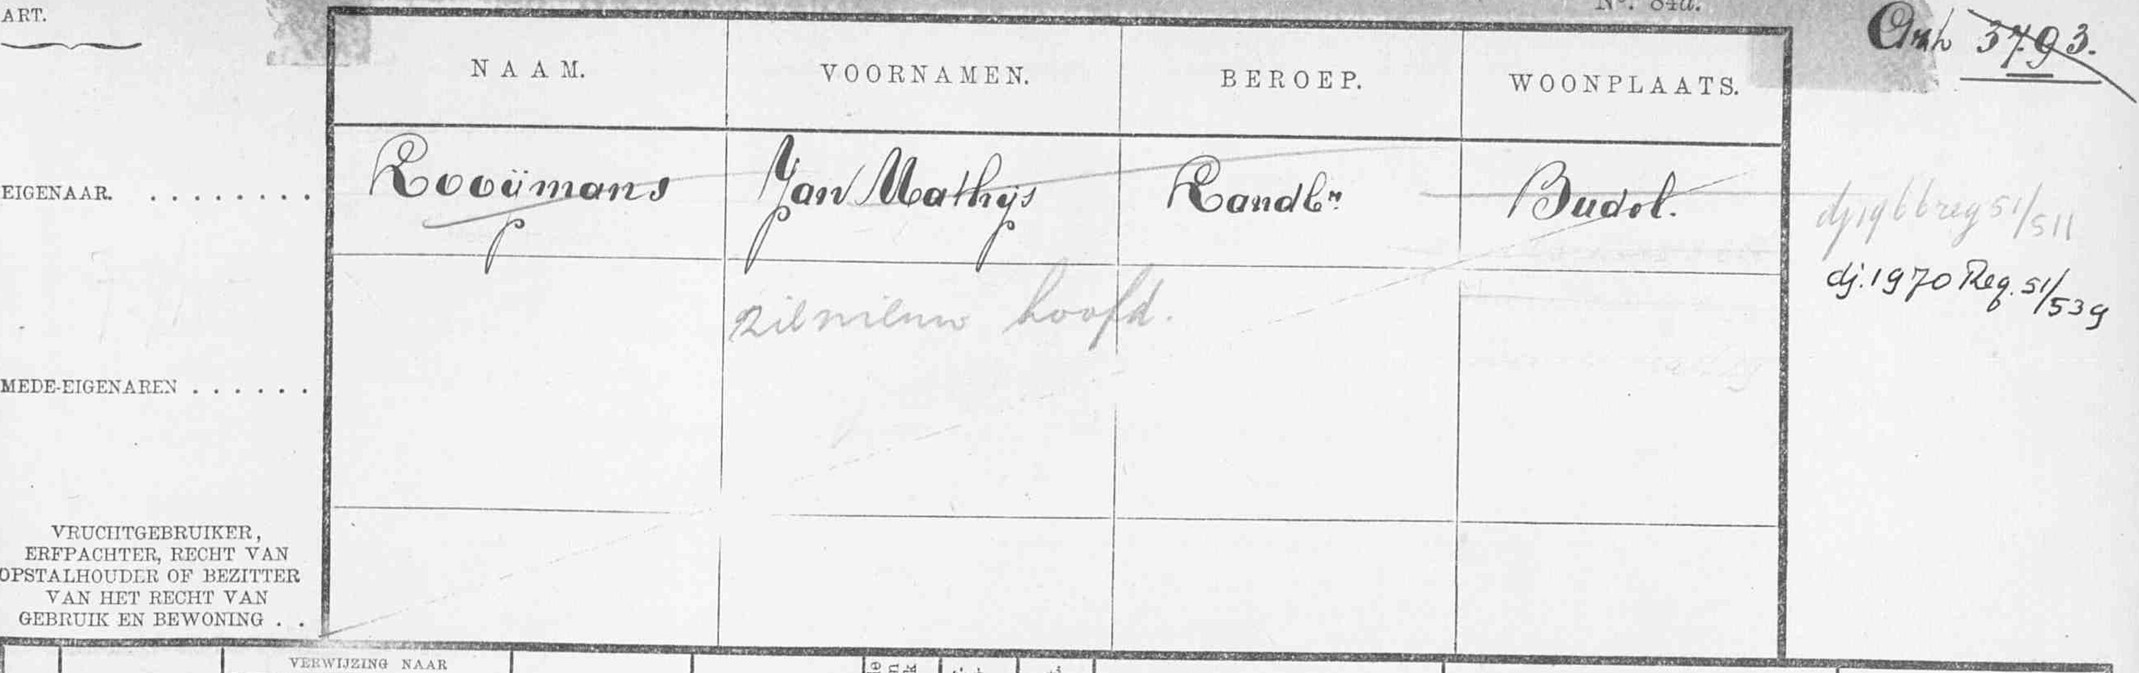 ART.
No. 84a.
Arth 3793.
NAAM. VOORNAMEN. BEROEP. WOONPLAATS.
EIGENAAR. . . . . . . . . Rooijmans Jan Mathijs Landbr. Budel.
dj 1966 reg 51/511
dj. 1970 Reg. 51/539
zie nieuw hoofd.
MEDE-EIGENAREN . . . . . .
VRUCHTGEBRUIKER,
ERFPACHTER, RECHT VAN
OPSTALHOUDER OF BEZITTER
VAN HET RECHT VAN
GEBRUIK EN BEWONING . .
VERWIJZING NAAR